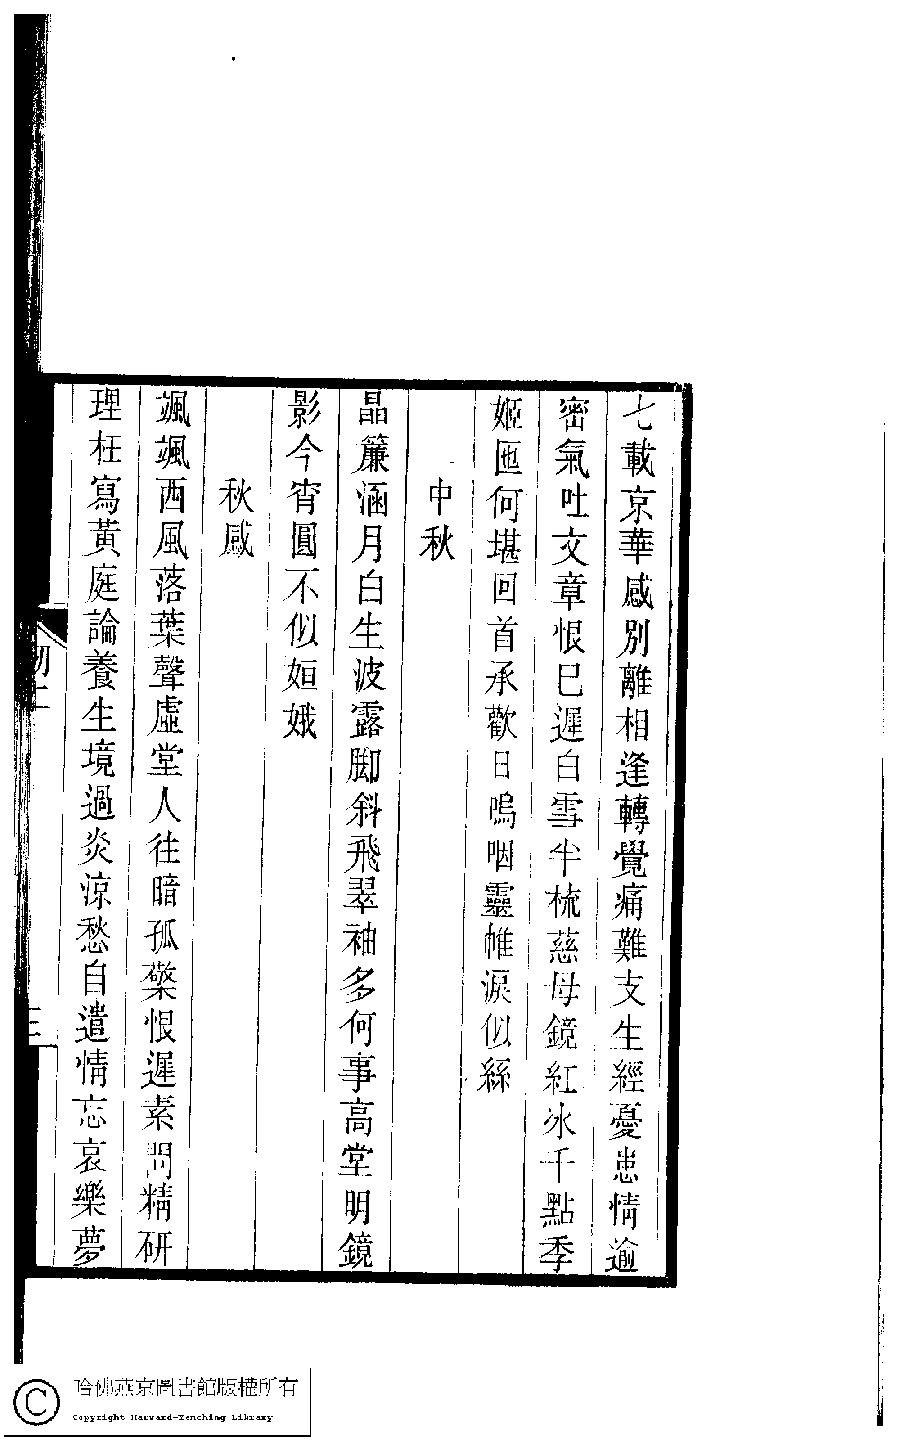 七載京華感別離相逢轉覺痛難支生經憂患情逾
密氣吐文章恨已遲白雪半梳慈母鏡紅冰千點季
姬匜何堪回首承歡日嗚咽靈帷淚似絲
中秋
晶簾涵月白生波露脚斜飛翠袖多何事高堂明鏡
影今宵圓不似姮娥
秋感
颯颯西風落葉聲虛堂人往暗孤檠恨遲素問精研
理枉寫黃庭論養生境過炎涼愁自遣情忘哀樂夢
三
哈佛燕京圖書館版權所有
Copyright Harvard-Yenching Library